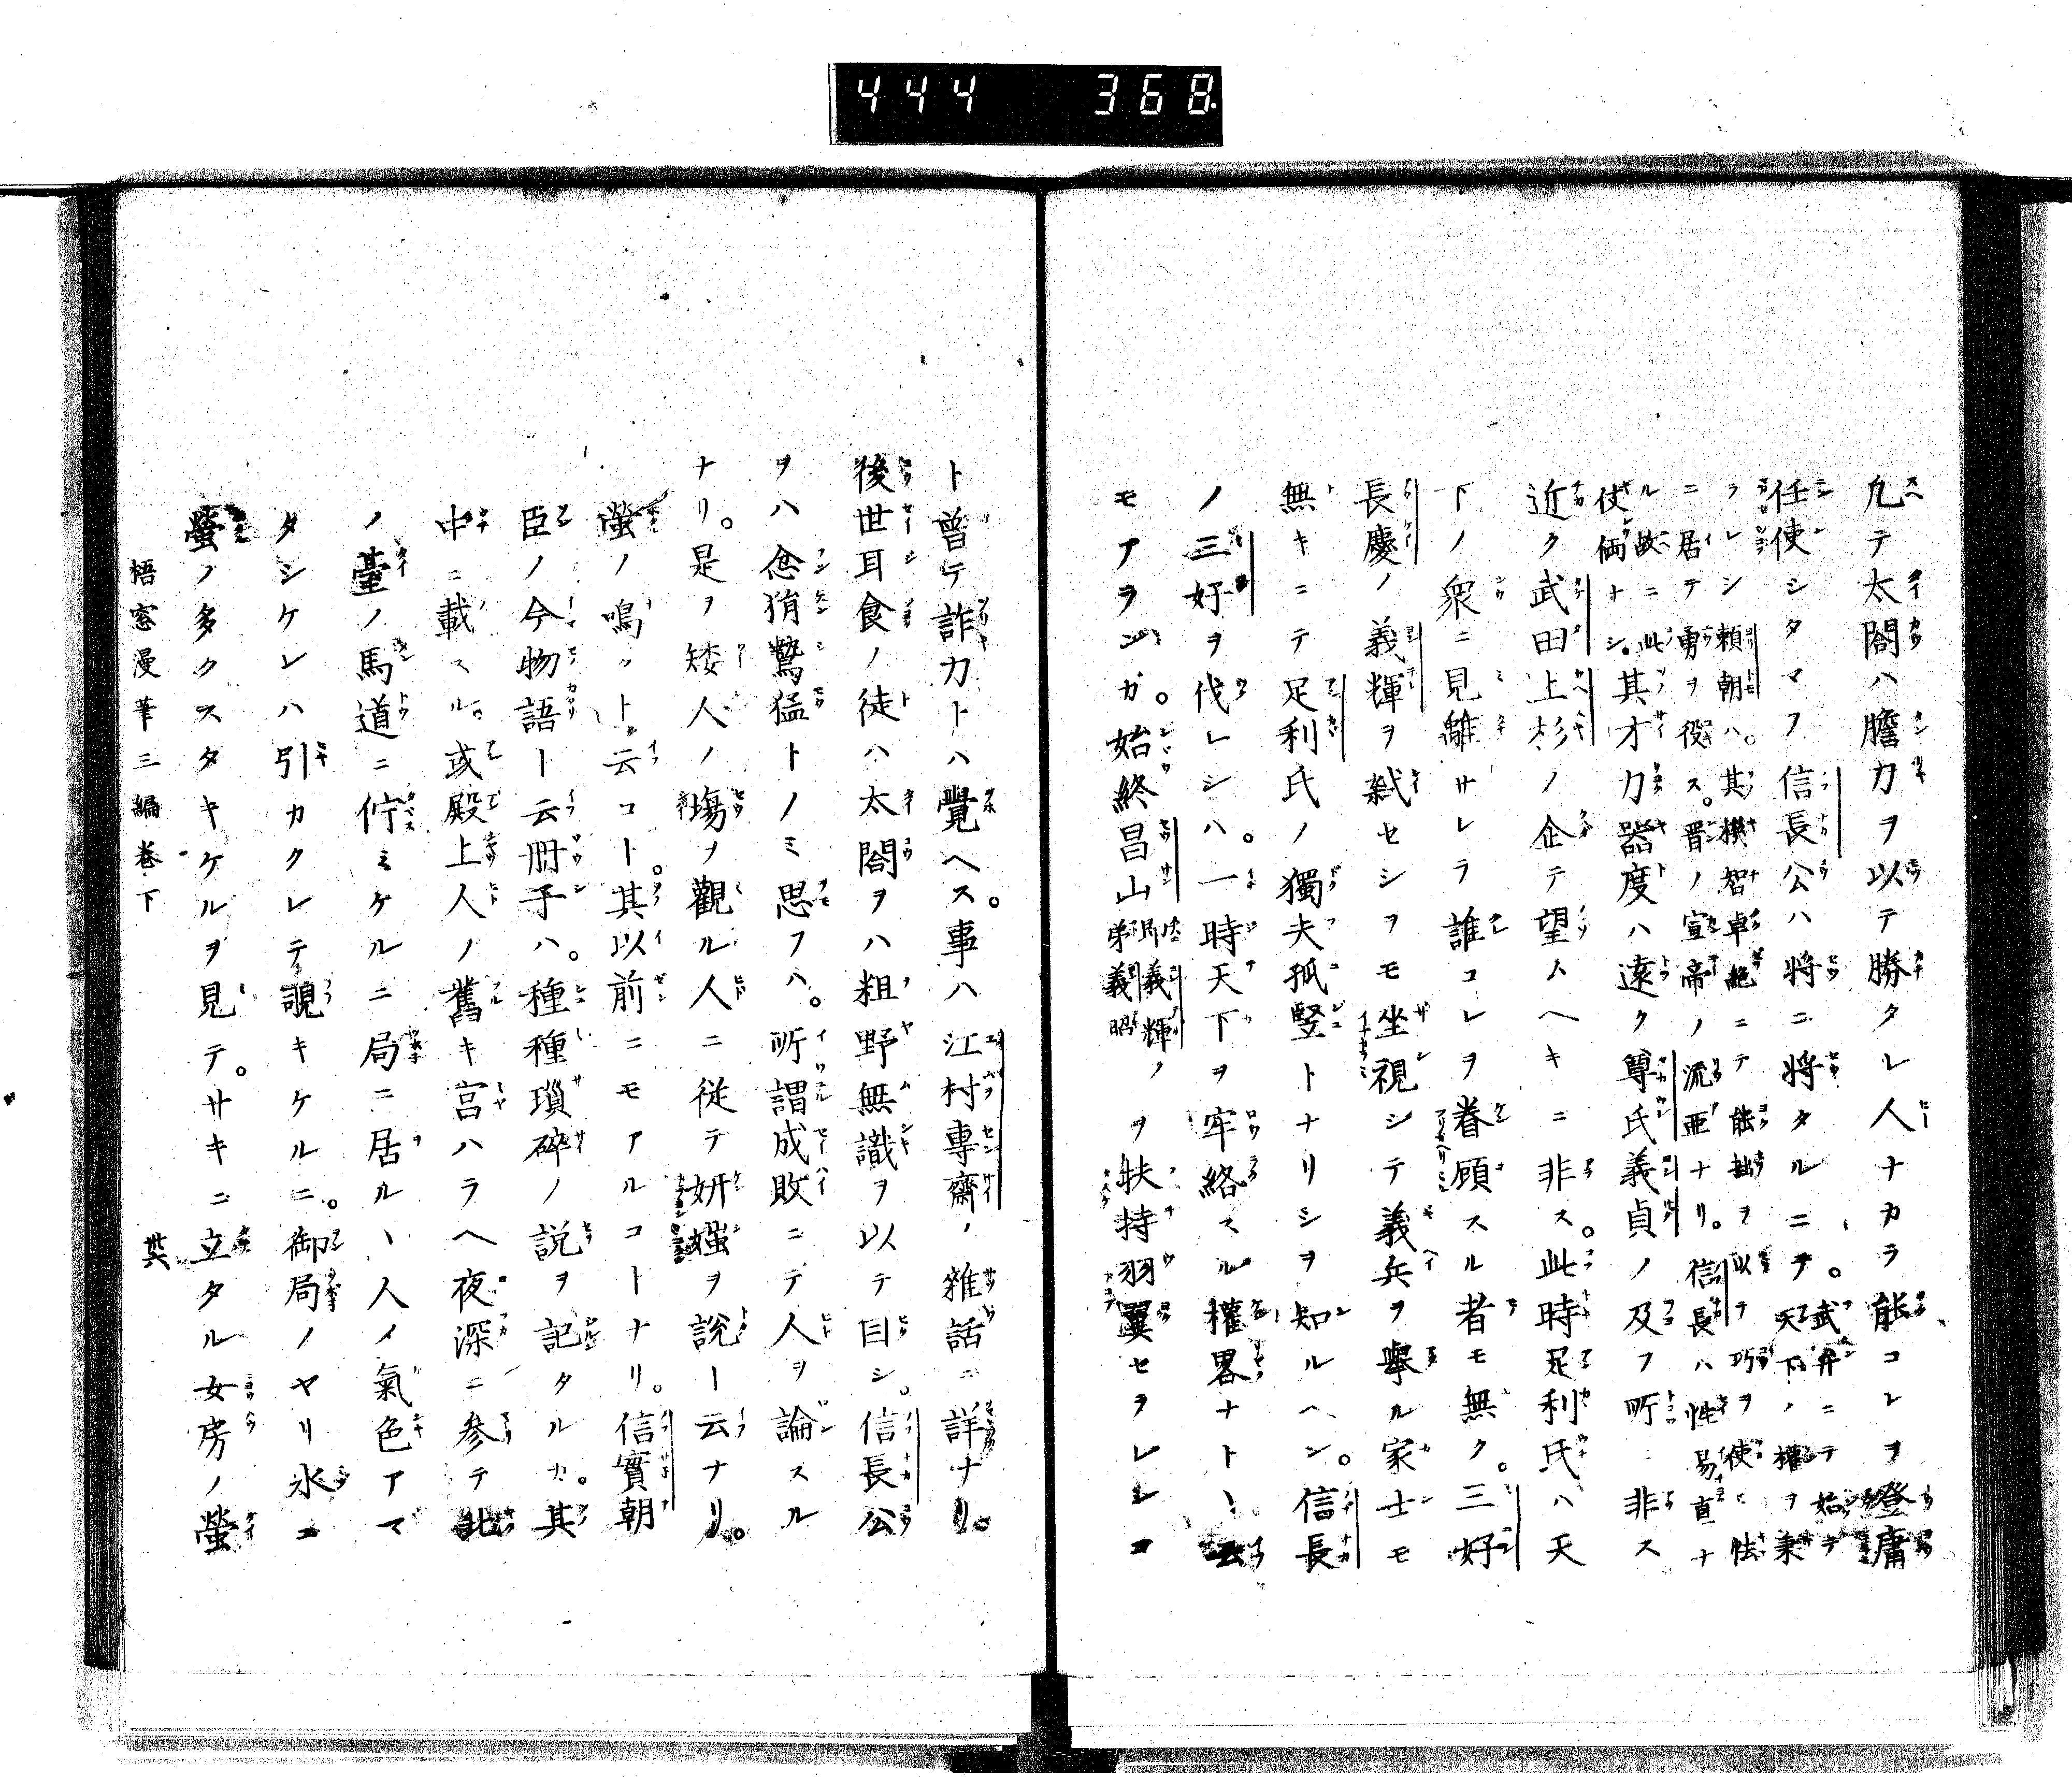 444 368
凢テ太閤ハ膽力ヲ以テ勝タレ人ナカラ能コレヲ登庸
任使シタマフ信長公ハ将ニ将タルニヲ。武弁ニテ始テ天下ノ權ヲ秉
ラレシ頼朝ハ。其機智卓絶ニテ能拙ヲ以テ巧ヲ使ヒ怯
ニ居テ勇ヲ役ス。晋ノ宣帝ノ流亜ナリ。信長ハ性易直ナ
ル故ニ此
伎倆ナシ。其才力器度ハ遠ク尊氏義貞ノ及フ所非ス
近ク武田上杉ノ企テ望ムヘキニ非ス。此時足利氏ハ天
下ノ衆ニ見離サレラ誰コレヲ眷顧スル者モ無ク。三好
長慶ノ義輝ヲ弑セシヲモ坐視シテ義兵ヲ擧ル家士モ
無キニテ足利氏ノ獨夫孤竪トナリシヲ知ルヘシ。信長
ノ三好ヲ伐レシハ。一時天下ヲ牢絡スル權畧ナト丶云
モアランカ。始終昌山義輝ノ弟義昭ヲ扶持羽翼セラレシコ
ト曽テ詐カトハ覺ヘス。事ハ江村專齋ノ雜話ニ詳ナリ。
後世耳食ノ徒ハ太閤ヲハ粗野無識ヲ以テ目シ。信長公
ヲハ忿狷鷙猛トノミ思フハ。所謂成敗ニテ人ヲ論スル
ナリ。是ヲ矮人ノ塲ヲ觀ル人ニ従テ妍媸ヲ説ト云ナリ。
螢ノ鳴クト云コト。其以前ニモアルコトナリ。信實朝
臣ノ今物語ト云冊子ハ。種種瑣碎ノ説ヲ記タルカ。其
中ニ載スル。或殿上人ノ舊キ宮ハラヘ夜深ニ参テ北
ノ臺ノ馬道ニ佇ミケルニ局ニ居ル丶人ノ氣色アマ
タシケレハ引カクレテ覗キケルニ。御局ノヤリ水ニ
螢ノ多クスタキケルヲ見テ。サキニ立タル女房ノ螢
梧窓漫筆三編巻下 廿六